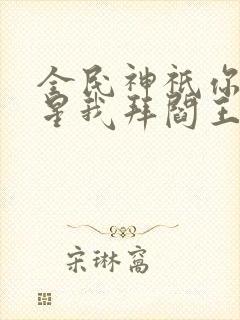 全民神祇你
星我拜阎王
宋琳窝